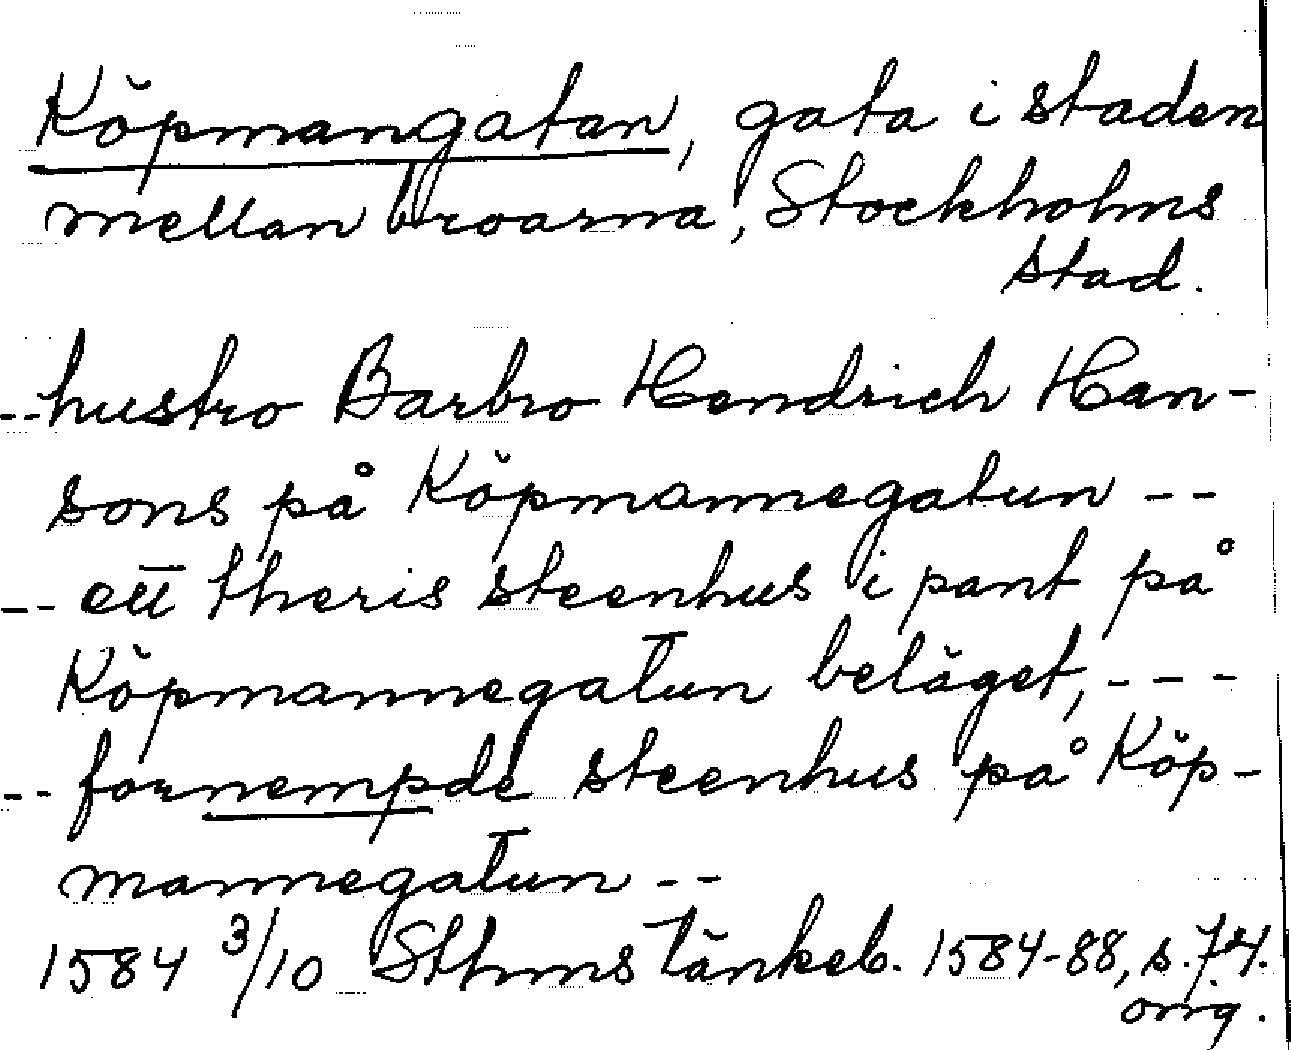 Köpmangatan, gata i staden
mellan broarna, Stockholms
stad.
-- hustro Barbro Hendrich Han-
sons på Köpmannegatun --
-- ett theris steenhus i pant på
Köpmannegatun beläget, ---
-- fornempde steenhus på Köp-
mannegatun --
1584 3/10 Sthms tänkeb. 1584-88, s. 74.
orig.